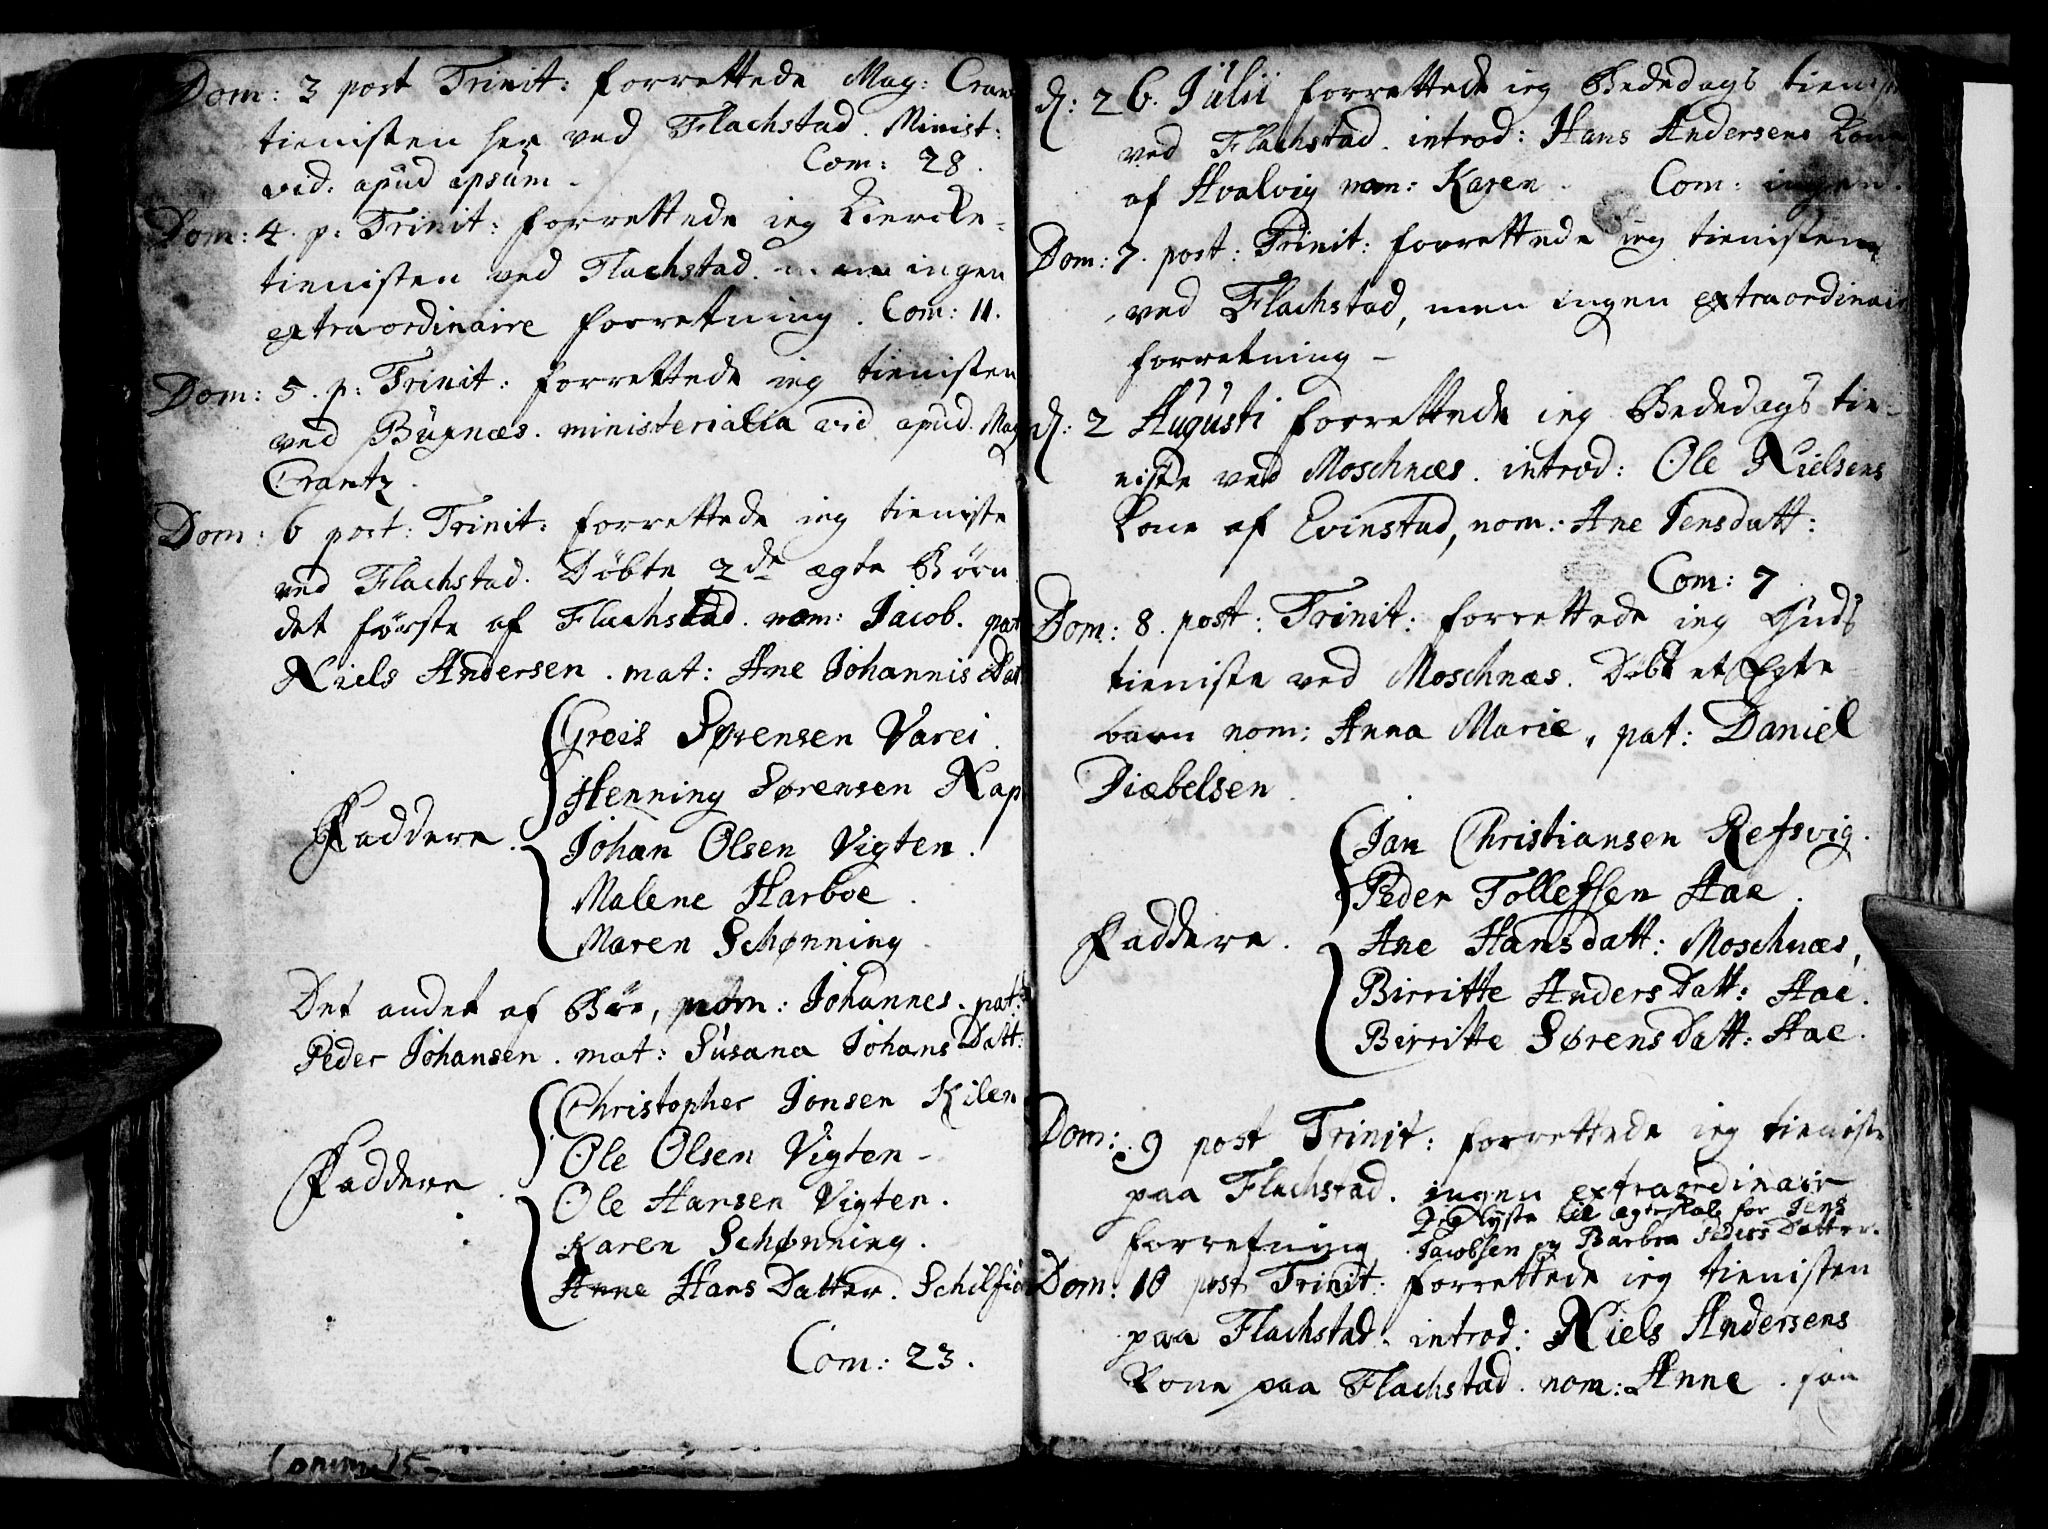 Dom: 3 post Trinit: forrettede Mag: Cran
tienisten her ved Flachstad. Minist:
vid: apud ipsum. Com: 28.
Dom: 4. p: Trinit: forrettede ieg Kierke-
tienisten ved Flachstad. men ingen
extraordinaire forretning. Com: 11.
Dom: 5. p: Trinit: forrettede ieg tienisten
ved Buxnæs. ministerialia vid apud. Mag
Crantz.
Dom: 6 post: Trinit: forrettede ieg tieniste
ved Flachstad. Døbte 2de ægte Børn
det første af Flachstad. nom: Jacob. pat
Niels Andersen. mat: Ane Johannis Dat
Greis Sørensen Varei.
Henning Sørensen Nap
Faddere. Johan Olsen Vigten.
Malene Harboe.
Maren Schønning.
Det andet af Bøe, nom: Johannes. pat:
Peder Johansen. mat: Susana Johans Datt:
Christopher Jonsen Kilen
Ole Olsen Vigten-
Faddere. Ole Hansen Vigten.
Karen Schønning.
Anne Hans Datter. Schilfio
Com: 23.
Comm. 15-
d: 26. Julii forrettede ieg Bededags tienist
ved Flachstad. introd: Hans Andersens Kone
af Hvalvig nom: Karen. Com: ingen.
Dom: 7. post: Trinit: forrettede ieg tienisten
ved Flachstad, men ingen extraordinair
forretning -
d: 2 Augusti forrettede ieg Bededags tie-
niste ved Moschnæs. introd: Ole Nielsens
Kone af Evinstad, nom: Ane Jensdatt:
Com: 7
Dom: 8. post: Trinit: forrettede ieg Guds
tieniste ved Moschnæs. Døbt et Egte-
barn nom: Anna Marie, pat: Daniel
Diæbelsen.
Jan Christiansen Refsvig.
Peder Tollefsen Aae.
Faddere. Ane Hansdatt: Moschnæs,
Birritte Anders Datt: Aae.
Birritte Sørens Datt: Aae.
Dom: 9 post Trinit: forrettede ieg tieniste
paa Flachstad. ingen extraordinair
forretning. lyste til ægteskab for Jens
Jacobsen og Barbra Peders Datter.
Dom: 10 post Trinit: forrettede ieg tienisten
paa Flachstad. introd: Niels Andersens
Kone paa Flachstad. nom: Anne. paa